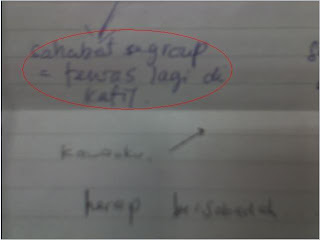 sahabat segroup
= tewas lagi di
katil.
kawanku.
harap bersabarlah